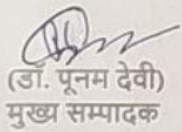 (डॉ. पूनम देवी)
मुख्य सम्पादक